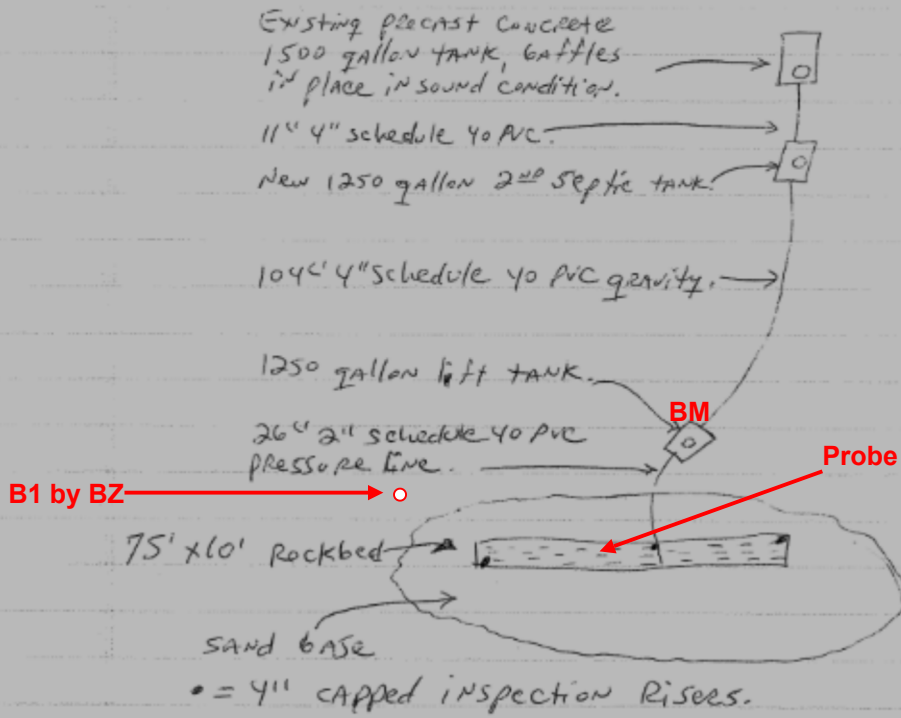 Existing precast concrete
1500 gallon tank, baffles
in place in sound condition.
11' 4" schedule 40 PVC.
New 1250 gallon 2nd septic tank.
104' 4" schedule 40 PVC gravity.
1250 gallon lift tank.
BM
26' 2" schedule 40 PVC
pressure line.
Probe
B1 by BZ
75' x 10' Rockbed
SAND bASe
• = 4" CAPPed inspection Risers.